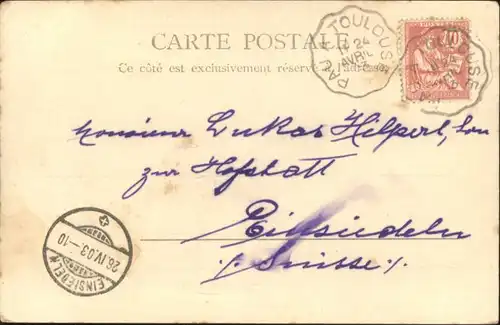 CARTE POSTALE
Ce côté est exclusivement réservé à l'adresse
PAU A TOULOUSE
24
AVRIL
10
TOULOUSE
Monsieur Lukas Helperl, Son
zur Hofstatt
Einsiedeln
/: Suisse :/
EINSIEDELN
26.IV.03.–10